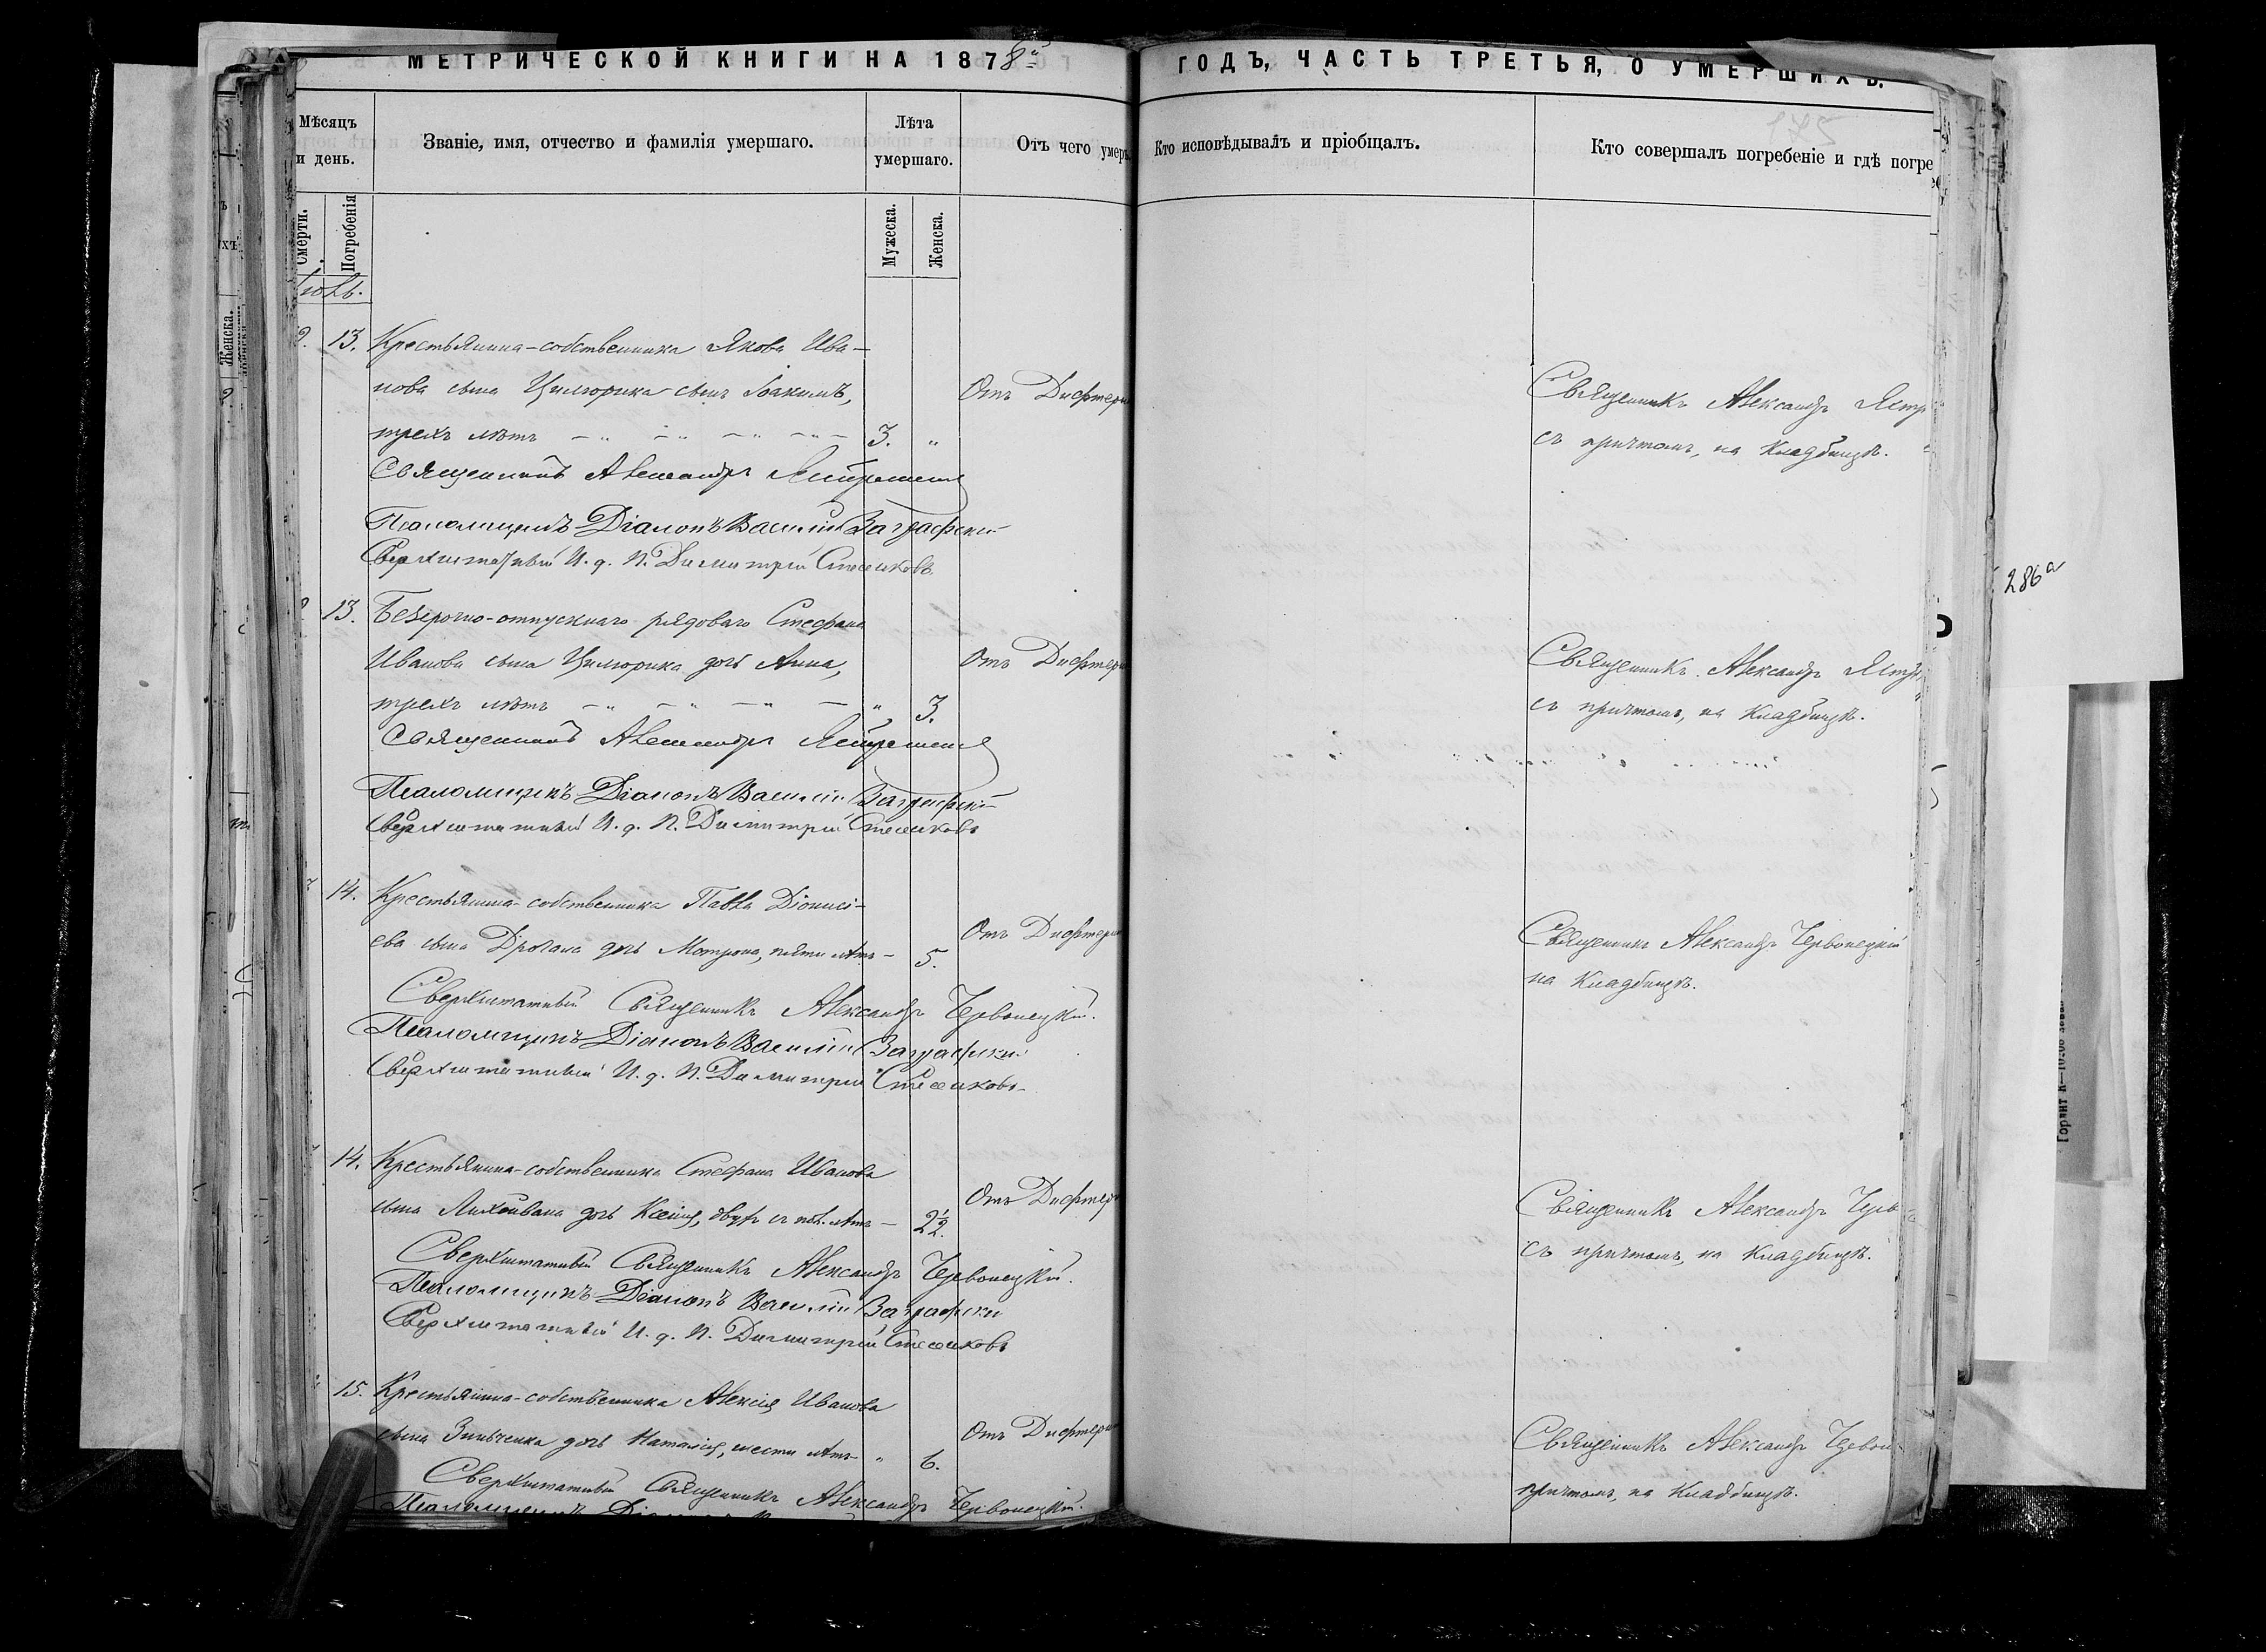 МЕТРИЧЕСКОЙ КНИГИ НА 1878й
ГОДЪ, ЧАСТЬ ТРЕТЬЯ, О УМЕРШИХЪ.
Мѣсяцъ
и день.
Званіе, имя, отчество и фамилія умершаго.
Лѣта
умершаго.
Отъ чего умеръ
Кто исповѣдывалъ и пріобщалъ.
Кто совершалъ погребеніе и гдѣ погре
Смерти.
Погребенія
Мужеска.
Женска.
13. Крестьянина-собственника Якова Ива-
нова сына Цилюрика сынъ Іоакимъ,
трехъ лѣтъ 3. "
Отъ Дифтери
Священникъ Александръ
съ причтомъ, на кладбищѣ.
Священникъ Александръ
Псаломщикъ Діаконъ Василій Заграфскій
Сверхштатный И. д. П. Димитрій
13. Безсрочно-отпускнаго рядоваго Стефана
Иванова сына Цилюрика дочь Анна,
трехъ лѣтъ " 3.
Отъ Дифтери
Священникъ Александръ
съ причтомъ, на кладбищѣ.
Священникъ Александръ
Псаломщикъ Діаконъ Василій Заграфскій
Сверхштатный И. д. П. Димитрій
14. Крестьянина-собственника Павла Діонисі-
ева сына Дрогала дочь Матрона, пяти лѣтъ - 5.
Отъ Дифтери
Священникъ Александръ Червонецкій
на кладбищѣ.
Сверхштатный Священникъ Александръ Червонецкій.
Псаломщикъ Діаконъ Василій Заграфскій
Сверхштатный И. д. П. Димитрій
14. Крестьянина-собственника Стефана Иванова
сына Лихойвана дочь Ксенія, двухъ съ пол. лѣтъ - 2½.
Отъ Дифтер
Священникъ Александръ Черв
съ причтомъ, на кладбищѣ.
Сверхштатный Священникъ Александръ Червонецкій.
Псаломщикъ Діаконъ Василій Заграфскій
Сверхштатный И. д. П. Димитрій
15. Крестьянина-собственника Алексія Иванова
сына Зинченка дочь Наталія, шести лѣтъ " 6.
Отъ Дифтери
Священникъ Александръ Червон
причтомъ, на кладбищѣ.
Сверхштатный Священникъ Александръ Червонецкій.
Псаломщикъ
286а